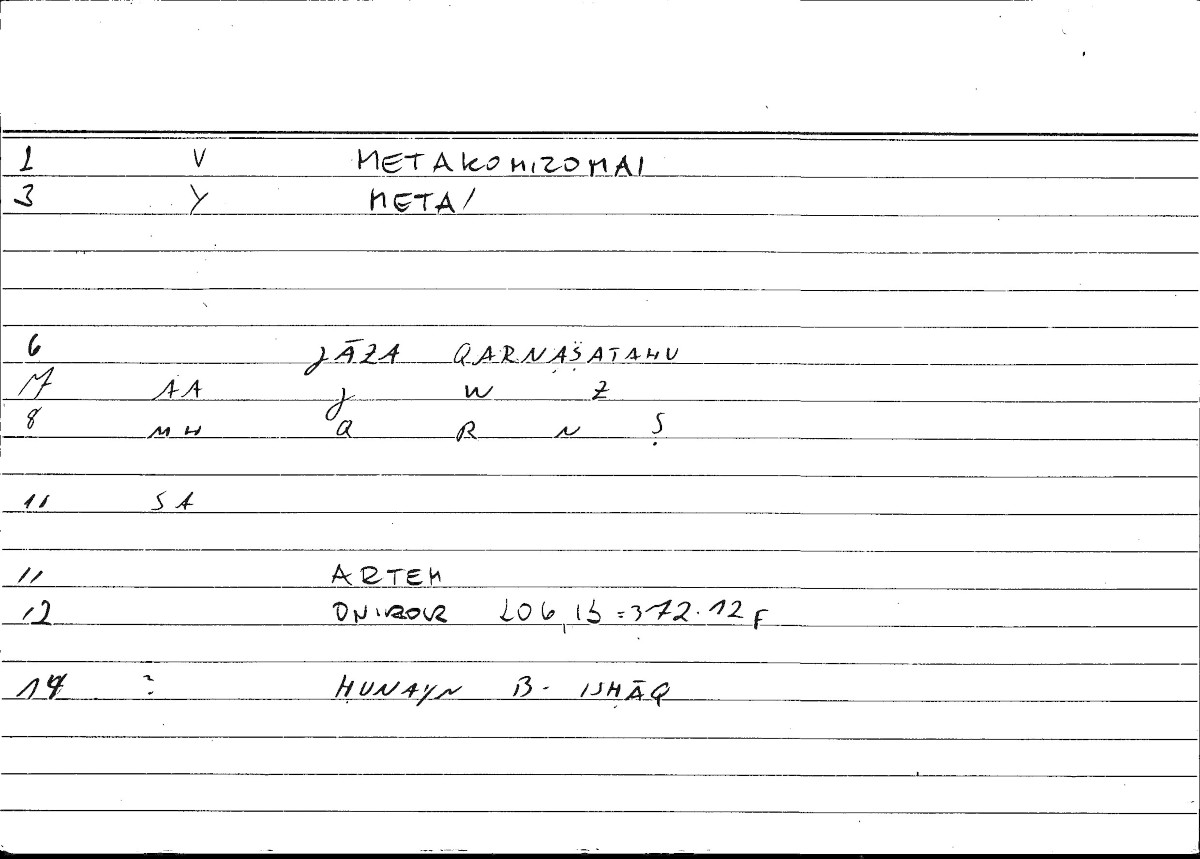 1 V METAKOMIZOMAI
3 Y META/
6 JĀZA QARNAṢATAHU
7 AA J W Z
8 MH Q R N Ṣ
11 SA
11 ARTEM
12 ONIROCR 206,15 = 372.12 F
14 ? ḤUNAYN B. ISḤĀQ